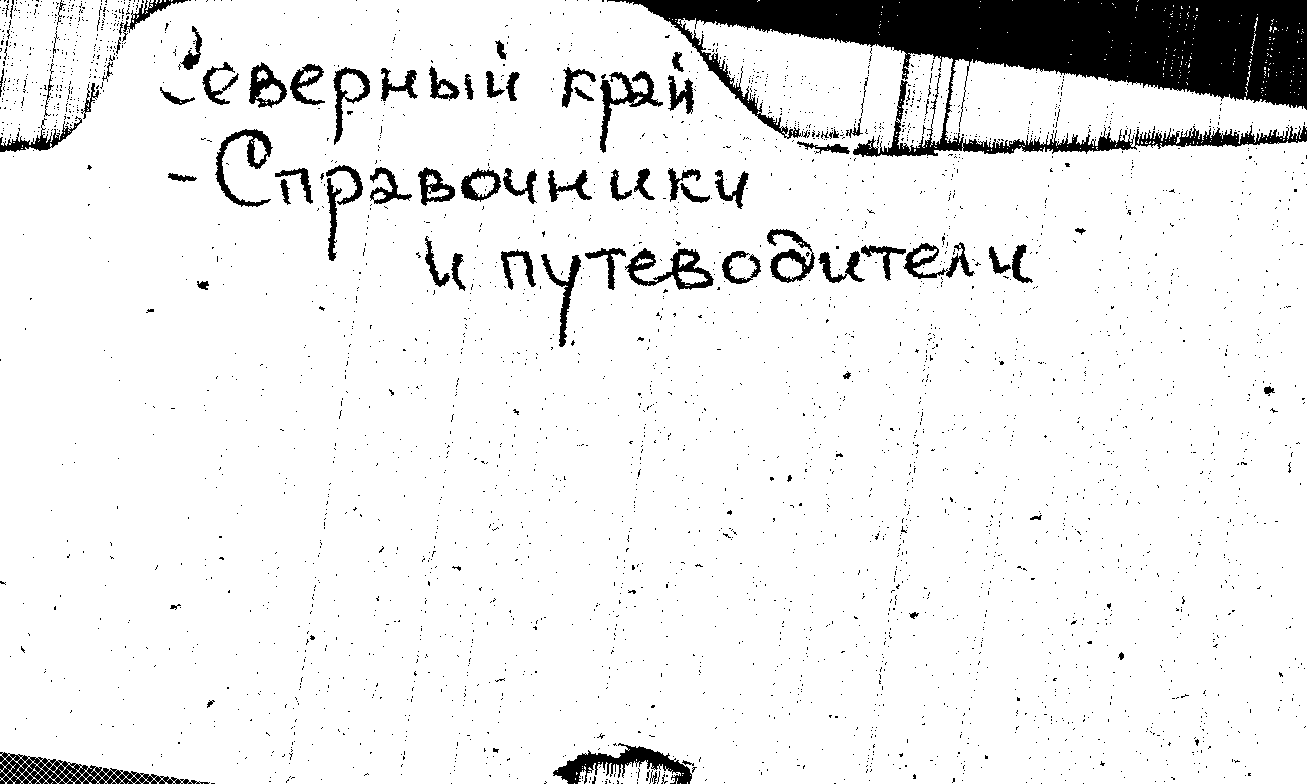 Северный край
- Справочники
и путеводители